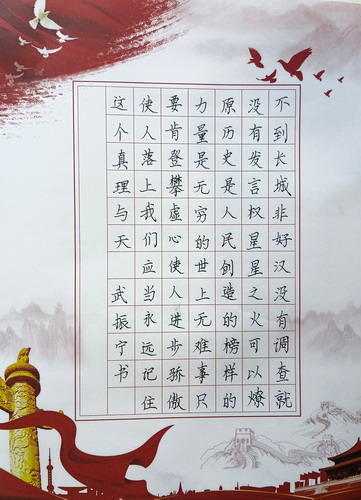 不到长城非好汉没有调查就
没有发言权星星之火可以燎
原历史是人民创造的榜样的
力量是无穷的世上无难事只
要肯登攀虚心使人进步骄傲
使人落上我们应当永远记住
这个真理与天 武振宁书